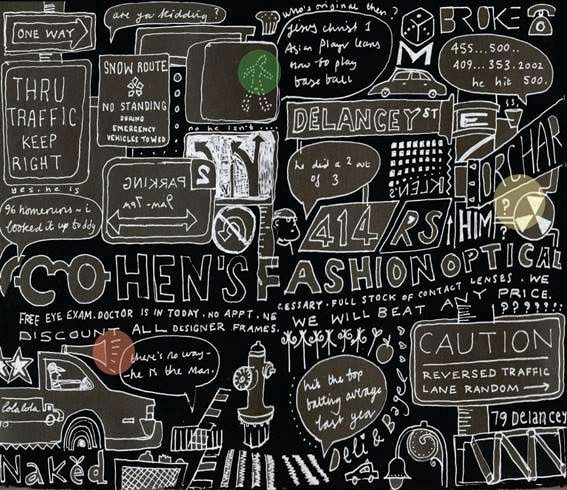 are ya kidding?
who's original then?
ONE WAY
Jesus christ 1
Asian player learns
how to play
base ball
M
BROKE
455...500..
409...353.2002
he hit 500.
SNOW ROUTE
NO STANDING
DURING
EMERGENCY
VEHICLES TOWED
THRU
TRAFFIC
KEEP
RIGHT
no he isn't
DELANCEY ST
E
7
ORCHAR
yes. he is
96 homeruns - i
looked it up today
PARKING
9am-7pm
2
he did a 2 out
of 3
KLENS
414
RS
HIM
?
COHEN'S FASHION OPTICAL
FREE EYE EXAM. DOCTOR IS IN TODAY. NO APPT. NE
CESSARY. FULL STOCK OF CONTACT LENSES. WE
DISCOUNT ALL DESIGNER FRAMES.
WE WILL BEAT ANY PRICE.
there's no way -
he is the man.
hit the top
batting average
last year
CAUTION
REVERSED TRAFFIC
LANE RANDOM →
79 Delancey
Lola Lola
Naked
Deli & Bagel